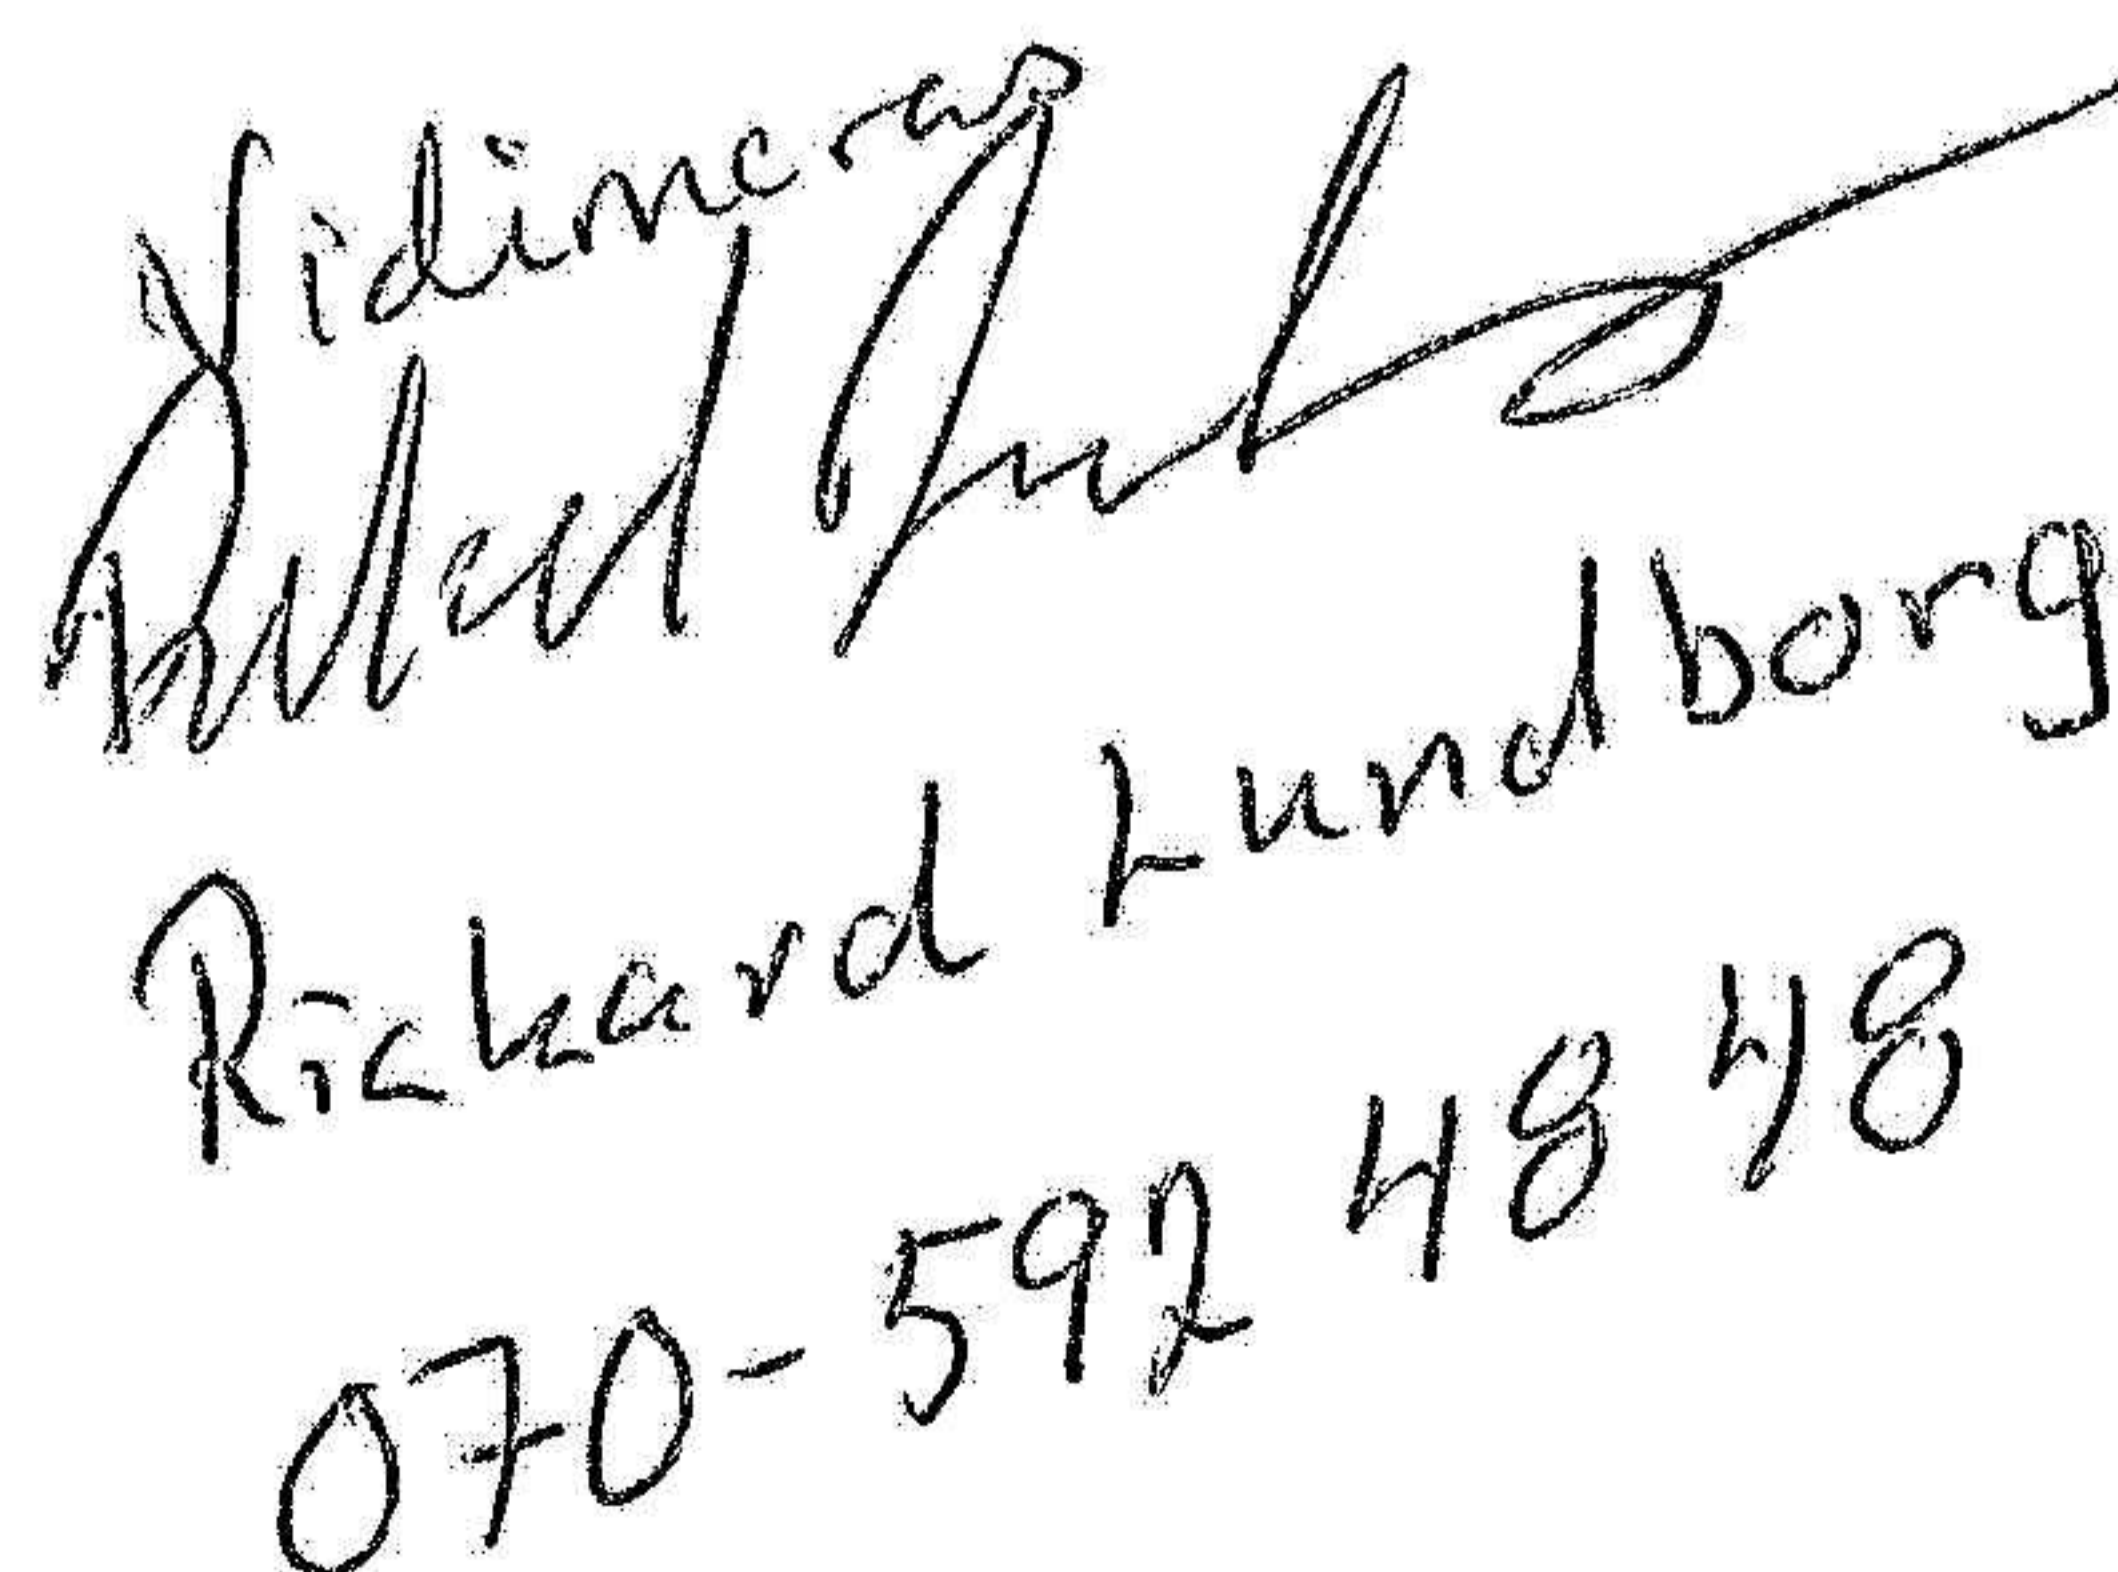 Vidimeras
Richard Lundborg
070-592 48 48